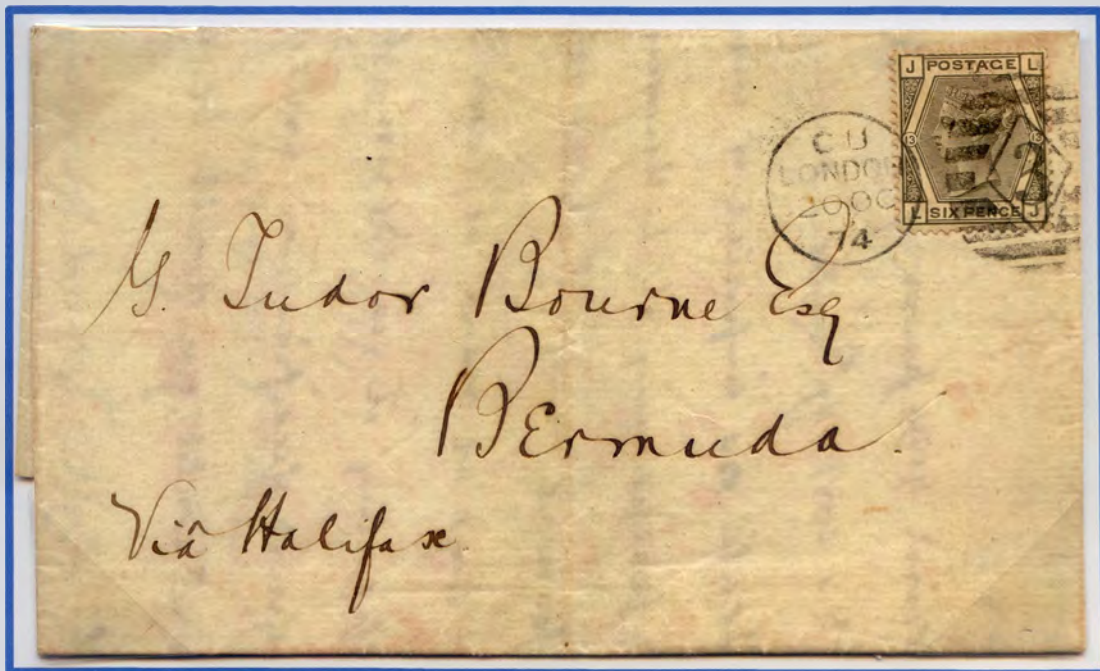 J POSTAGE L
13 13
L SIX PENCE J
CU
LONDON
OC
74
G. Tudor Bourne Esq
Bermuda.
Viâ Halifax